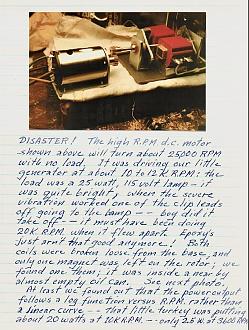 DISASTER! The high R.P.M. d.c. motor
shown above will turn about 25000 RPM
with no load. It was driving our little
generator at about 10 to 12 K RPM; the
load was a 25 watt, 115 volt lamp - it
was quite bright, when the severe
vibration worked one of the clip leads
off going to the lamp -- boy did it
take off - it must have been doing
20K R.P.M. when it flew apart. Epoxy's
just arn't that good anymore! Both
coils were broken loose from the base, and
only one magnet was left on the rotor; we
found them; it was inside a near by
almost empty oil can. See next photo.
At least we found out that the power output
follows a log function versus R.P.M. rather than
a linear curve -- that little turkey was putting out
about 20 watts at 10K RPM. -- only 2.5W at 3600 RPM